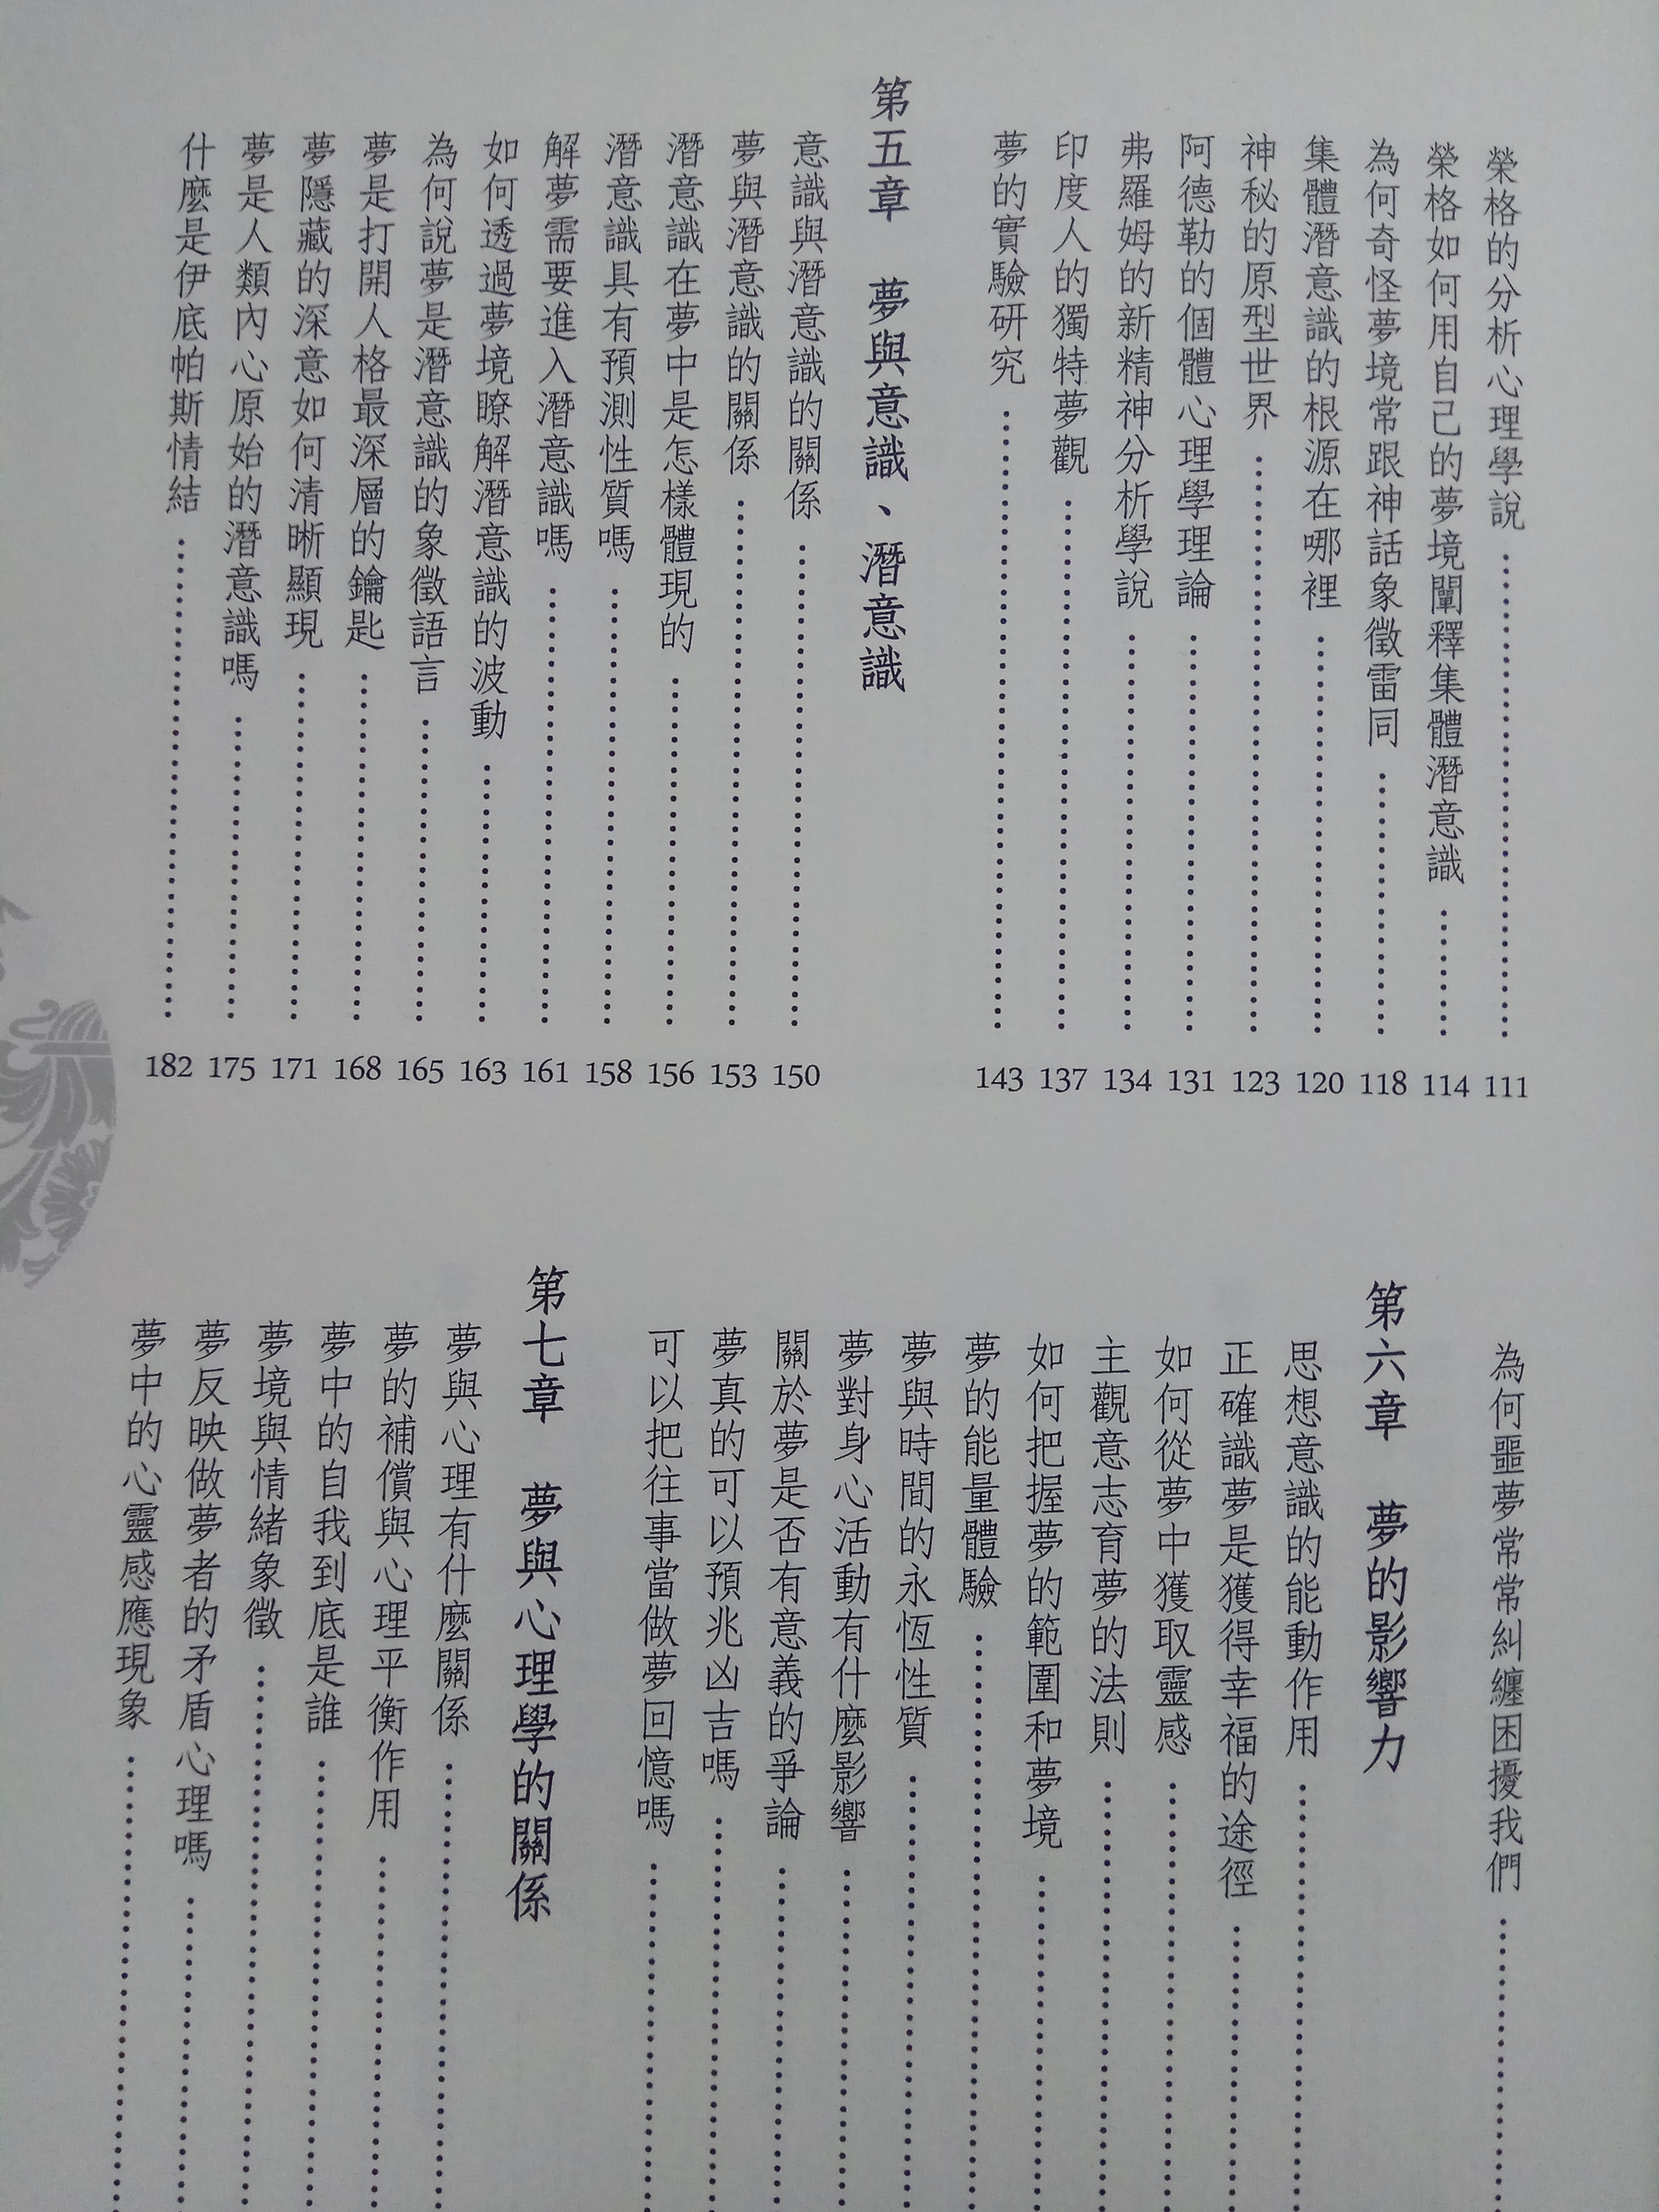 榮格的分析心理學說………………111
榮格如何用自己的夢境闡釋集體潛意識………………114
為何奇怪夢境常跟神話象徵雷同………………118
集體潛意識的根源在哪裡………………120
神秘的原型世界………………123
阿德勒的個體心理學理論………………131
弗羅姆的新精神分析學說………………134
印度人的獨特夢觀………………137
夢的實驗研究………………143
第五章 夢與意識、潛意識
意識與潛意識的關係………………150
夢與潛意識的關係………………153
潛意識在夢中是怎樣體現的………………156
潛意識具有預測性質嗎………………158
解夢需要進入潛意識嗎………………161
如何透過夢境瞭解潛意識的波動………………163
為何說夢是潛意識的象徵語言………………165
夢是打開人格最深層的鑰匙………………168
夢隱藏的深意如何清晰顯現………………171
夢是人類內心原始的潛意識嗎………………175
什麼是伊底帕斯情結………………182
為何噩夢常常糾纏困擾我們………………
第六章 夢的影響力
思想意識的能動作用………………
正確識夢是獲得幸福的途徑………………
如何從夢中獲取靈感………………
主觀意志育夢的法則………………
如何把握夢的範圍和夢境………………
夢的能量體驗………………
夢與時間的永恆性質………………
夢對身心活動有什麼影響………………
關於夢是否有意義的爭論………………
夢真的可以預兆凶吉嗎………………
可以把往事當做夢回憶嗎………………
第七章 夢與心理學的關係
夢與心理有什麼關係………………
夢的補償與心理平衡作用………………
夢中的自我到底是誰………………
夢境與情緒象徵………………
夢反映做夢者的矛盾心理嗎………………
夢中的心靈感應現象………………